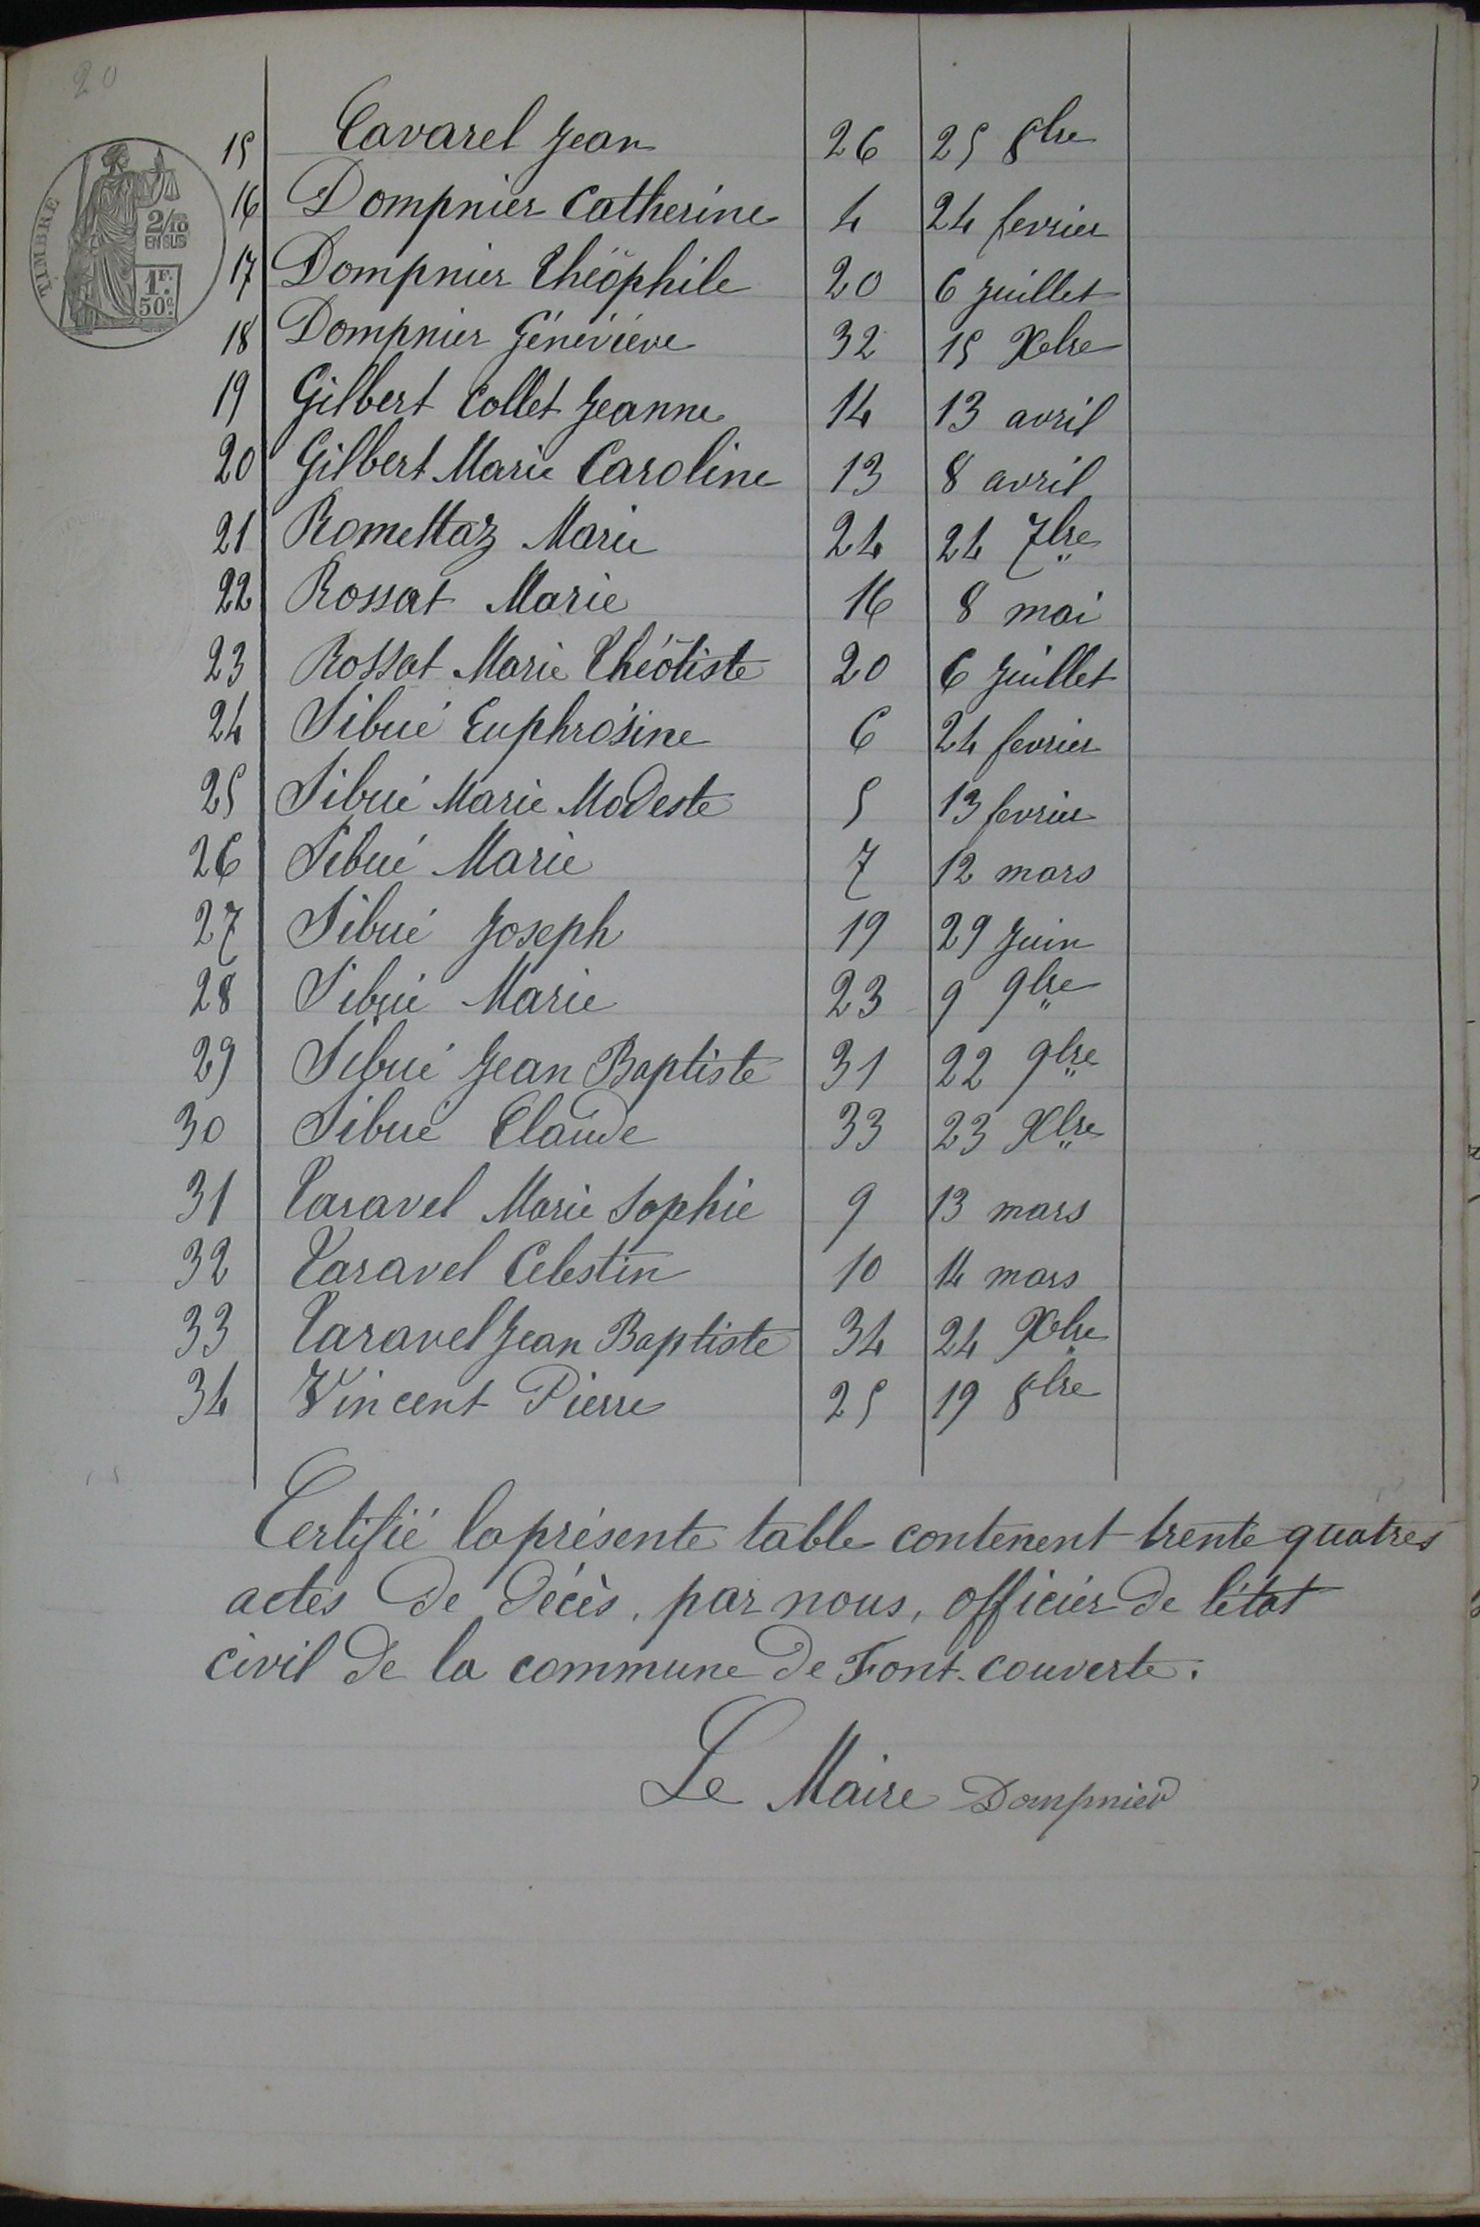 20
TIMBRE
2/10
EN SUS
1F.
50c.
15 Cavarel Jean 26 25 8bre
16 Dompnier Catherine 4 24 fevrier
17 Dompnier Théophile 20 6 Juillet
18 Dompnier Généviéve 32 15 Xbre
19 Gilbert Collet Jeanne 14 13 avril
20 Gilbert Marie Caroline 13 8 avril
21 Romettaz Marie 24 24 7bre
22 Rossat Marie 16 8 mai
23 Rossat Marie Théotiste 20 6 Juillet
24 Sibué Euphrosine 6 24 fevrier
25 Sibué Marie Modeste 5 13 fevrier
26 Sibué Marie 7 12 mars
27 Sibué Joseph 19 29 Juin
28 Sibué Marie 23 9 9bre
29 Sibué Jean Baptiste 31 22 9bre
30 Sibué Claude 33 23 Xbre
31 Taravel Marie Sophie 9 13 mars
32 Taravel Celestin 10 14 mars
33 Taravel Jean Baptiste 34 24 Xbre
34 Vincent Pierre 25 19 8bre
Certifié la présente table contenent trente quatres
actes de décès, par nous, officier de l'état
civil de la commune de Font-couverte.
Le Maire Dompnier